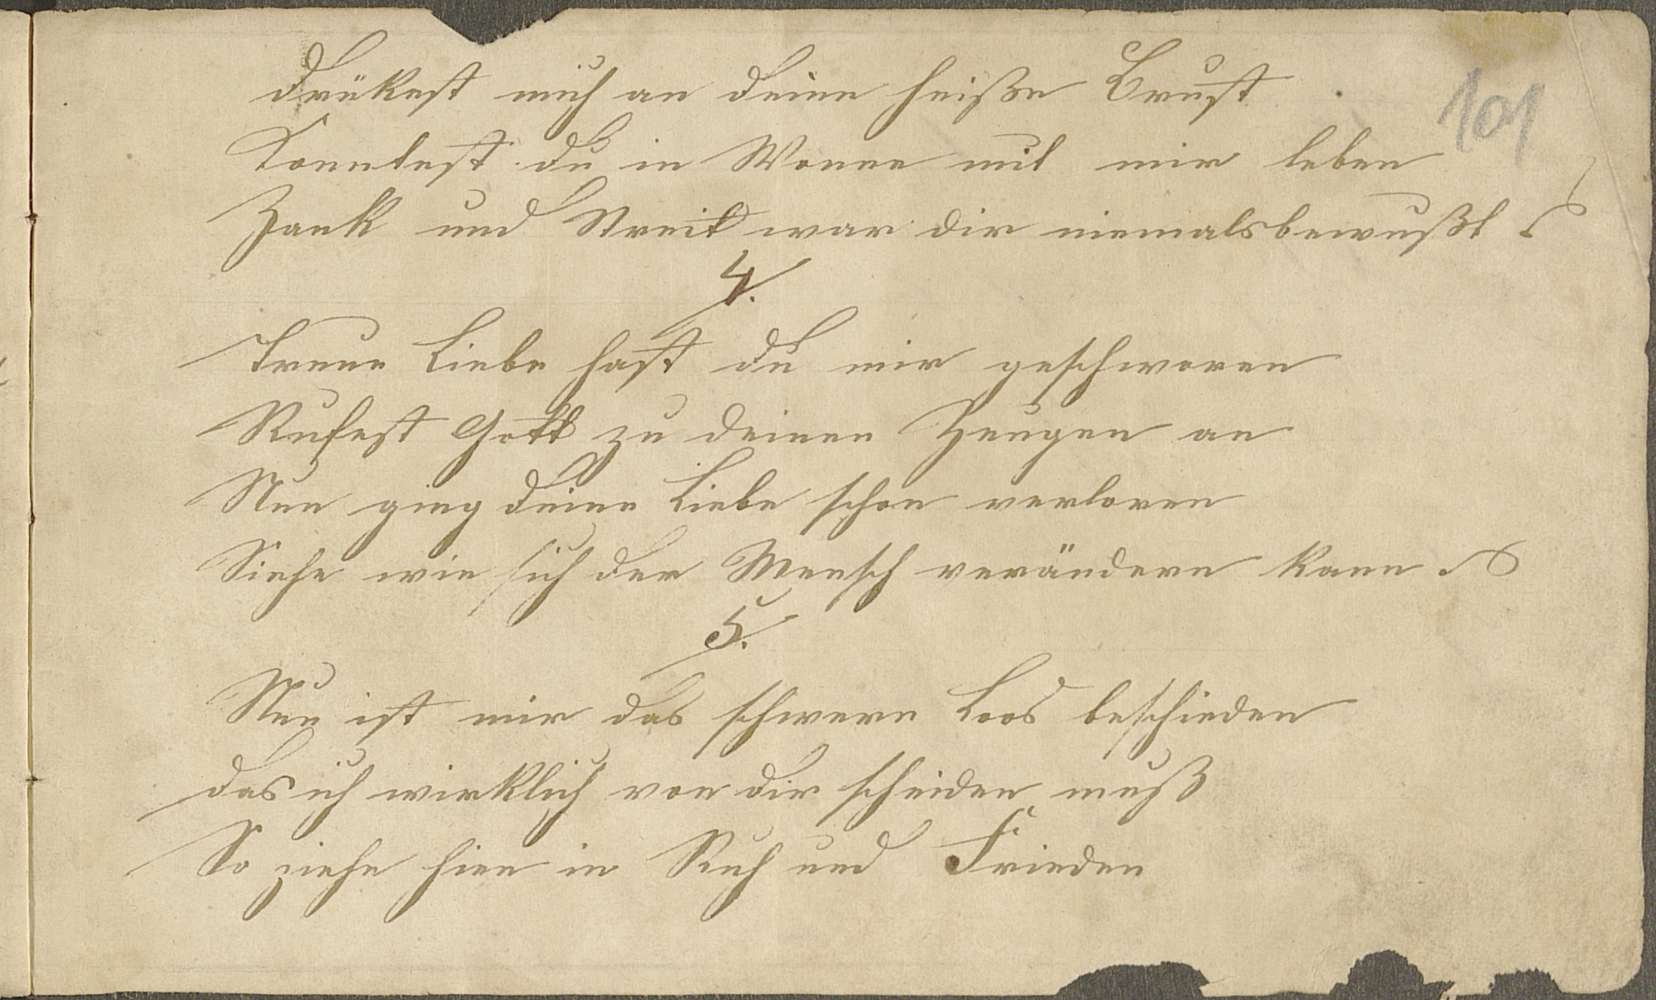 101
Drükest mich an deine heiße Brust
Konntest du in Wonne mit mir leben
Zank und Streit war dir niemalsbewußt
4.
Treue Liebe hast du mir geschworen
Rufest Gott zu deinen Zeugen an
Nun ging deine Liebe schon verloren
Siehe wie sich der Mensch verändern kann
5.
Nun ist mir das schwere Loos beschieden
das ich wirklich von dir scheiden muß
So ziehe hien in Ruh und Frieden